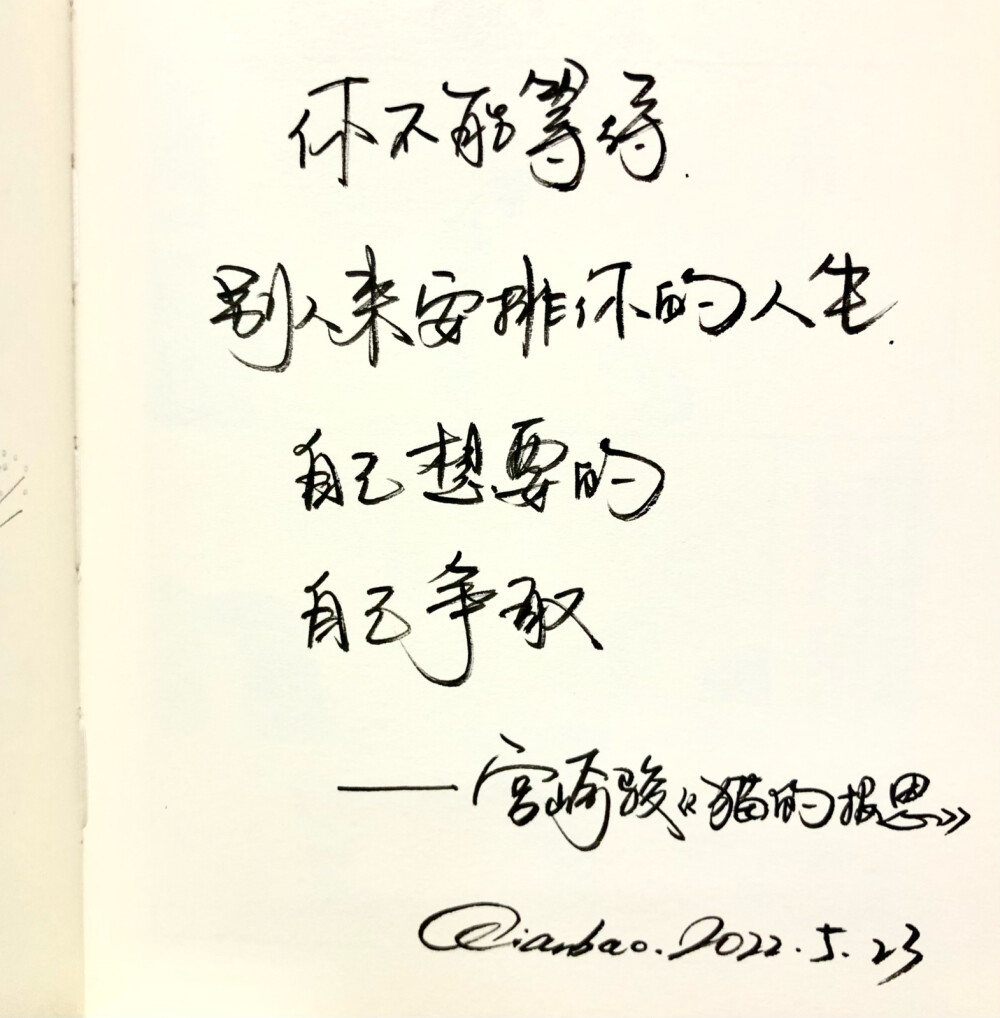 你不能等待.
别人来安排你的人生.
自己想要的
自己争取
——宫崎骏《猫的报恩》
Qianbao. 2022. 5. 23